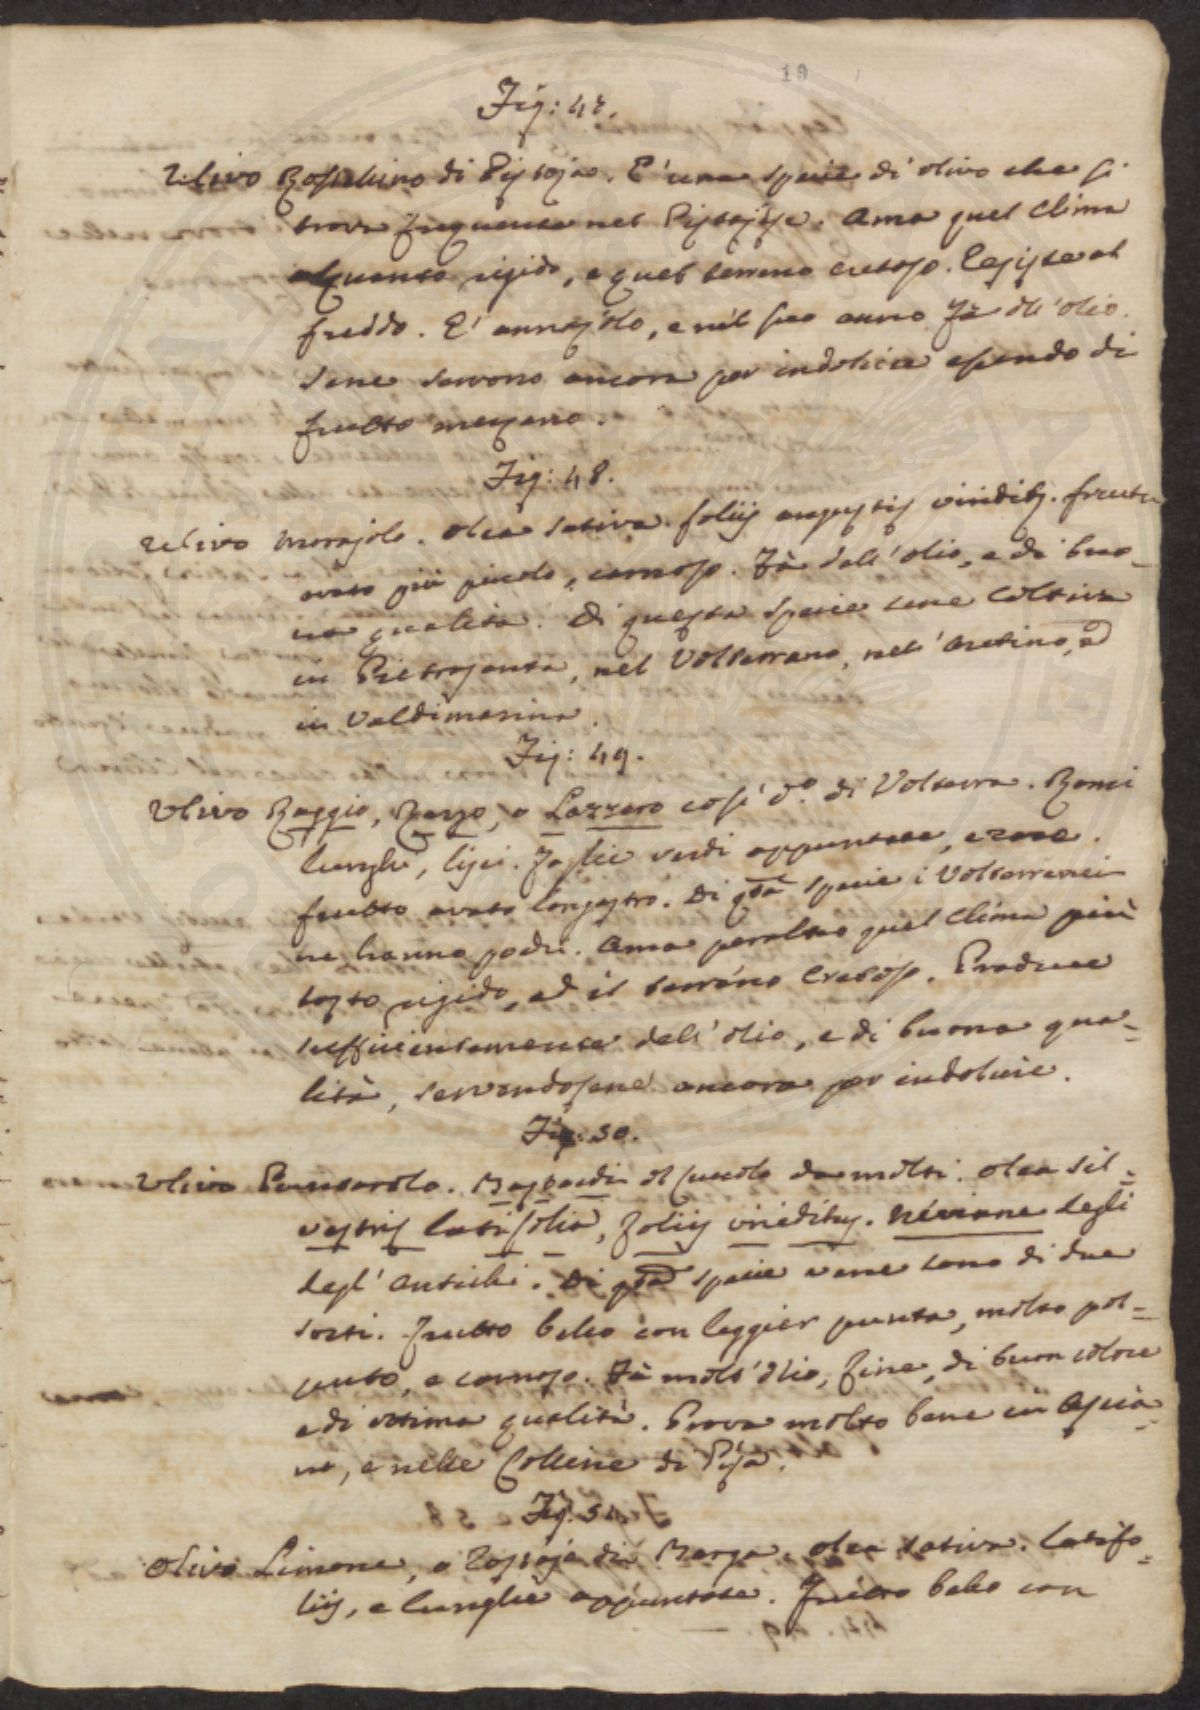 19
Fig: 47.
Ulivo Rossellino di Pistoja. E' una specie di olivo che si
trova frequente nel Pistojese. Ama quel Clima
alquanto rigido, e quel terreno cretoso. Resiste al
freddo. E' annajolo, e nel suo anno fà dell'olio.
Sene servono ancora per indolcire essendo di
frutto mezzano.
Fig: 48.
Ulivo Morajolo. Olea sativa foliis angustis viridib. fructu
ovato più piccolo, carnoso. Fà dell'olio, e di buo-
na qualità. Di questa specie sene Coltiva
in Pietrasanta, nel Volterrano, nell'Aretino, e
in Valdimarina.
Fig: 49.
Ulivo Raggio, Razzo, o Lazzero così d.º di Volterra. Rami
lunghi, lisci. Foglie verdi appuntate, e rare.
frutto ovato longastro. Di qsta specie i Volterranei
ne hanno pochi. Ama peraltro quel Clima più
tosto rigido, ed il terreno Cretoso. Produce
sufficientemente dell'olio, e di buona qua-
lità, servendosene ancora per indolcire.
Fig: 50.
Ulivo Puntarolo. Mastardi il piccolo da molti. Olea sil-
vestris latifolia, foliis viridibus. degli
degl'Antichi. Di qsta specie vene sono di due
sorti. Frutto bello con leggier punta, molto pol-
puto, e carnoso. Fà molt'olio, fine, di buon colore
e di ottima qualità. Prova molto bene in Ascia-
no, e nelle Colline di Pisa.
Fig: 51.
Olivo Limone, o di Barga. Olea sativa. Latifo-
liis, e lunghe appuntate. Frutto bello con